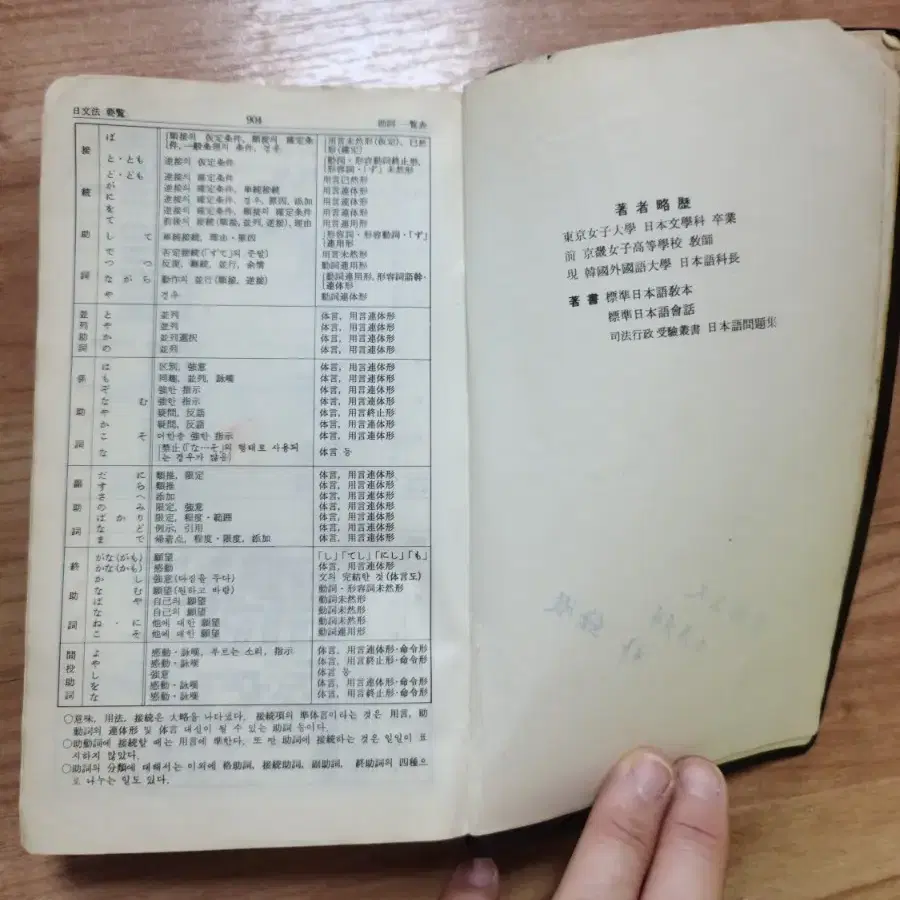 日文法 要覧 904 助詞一覧表
接続助詞
ば 「順接의 仮定条件, 順接의 確定条件, 一般条理의 条件, 경우 「用言未然形(仮定), 已然形(確定)
と・とも 逆接의 仮定条件 「動詞・形容動詞終止形, 形容詞・「ず」未然形
ど・ども 逆接의 確定条件 用言已然形
が 逆接의 確定条件, 単純接続 用言連体形
に 逆接의 確定条件, 경우, 原因, 添加 用言連体形
を 逆接의 確定条件, 順接의 確定条件 用言連体形
て 前後의 接続(順接, 並列, 逆接), 理由 用言連用形
して 単純接続, 理由・ 「形容詞・形容動詞・「ず」連用形
で 否定接続(「ずて」의 준말) 用言未然形
つつ 反復, 継続, 並行, 余情 動詞連用形
ながら 動作의 並行(順接, 逆接) 「動詞連用形, 形容詞語幹・連体形
や 경우 動詞連体形
並列助詞
と 並列 体言, 用言連体形
や 並列 体言, 用言連体形
か 並列選択 体言, 用言連体形
の 並列 体言, 用言連体形
係助詞
は 区別, 強意 体言, 用言連体形
も 同趣, 並列, 詠嘆 体言, 用言連体形
ぞ 強한 指示 体言, 用言連体形
なむ 強한 指示 体言, 用言連体形
や 疑問, 反語 体言, 用言終止形
か 疑問, 反語 体言, 用言連体形
こそ 더한층 強한 指示 体言, 用言連体形
な 「禁止(「な…そ」의 형태로 사용되는 경우가 많음) 体言 등
副助詞
だに 類推, 限定 体言, 用言連体形
すら 類推 体言, 用言連体形
さへ 添加 体言, 用言連体形
のみ 限定, 強意 体言, 用言連体形
ばかり 限定, 程度・範囲 体言, 用言連体形
など 例示, 引用 体言, 用言連体形
まで 帰着点, 程度・限度, 添加 体言, 用言連体形
終助詞
がな(がも) 願望 「し」「てし」「にし」「も」
かな(かも) 感動 体言, 用言連体形
かし 強意(다짐을 두다) 文의 完結한 것(体言도)
なむ 願望(원하고 바람) 動詞・形容詞未然形
ばや 自己의 願望 動詞未然形
な 自己의 願望 動詞未然形
ね・に 他에 대한 願望 動詞未然形
こそ 他에 대한 願望 動詞連用形
間投助詞
よ 感動・詠嘆, 부르는 소리, 指示 体言, 用言連体形・命令形
や 感動・詠嘆 体言, 用言終止形・命令形
し 強意 体言 등
を 感動・詠嘆 体言, 用言連体形・命令形
な 感動・詠嘆 体言, 用言終止形・命令形
○意味, 用法, 接続은 大略을 나타냈다. 接続項의 準体言이라는 것은 用言, 助
動詞의 連体形 및 体言 대신이 될 수 있는 助詞 등이다.
○助動詞에 接続할 때는 用言에 準한다. 또 딴 助詞에 接続하는 것은 일일이 표
시하지 않았다.
○助詞의 分類에 대해서는 이외에 格助詞, 接続助詞, 副助詞, 終助詞의 四種으
로 나누는 일도 있다.
著者略歴
東京女子大學 日本文學科 卒業
前 京畿女子高等學校 敎師
現 韓國外國語大學 日本語科長
著書 標準日本語敎本
標準日本語會話
司法行政 受驗叢書 日本語問題集